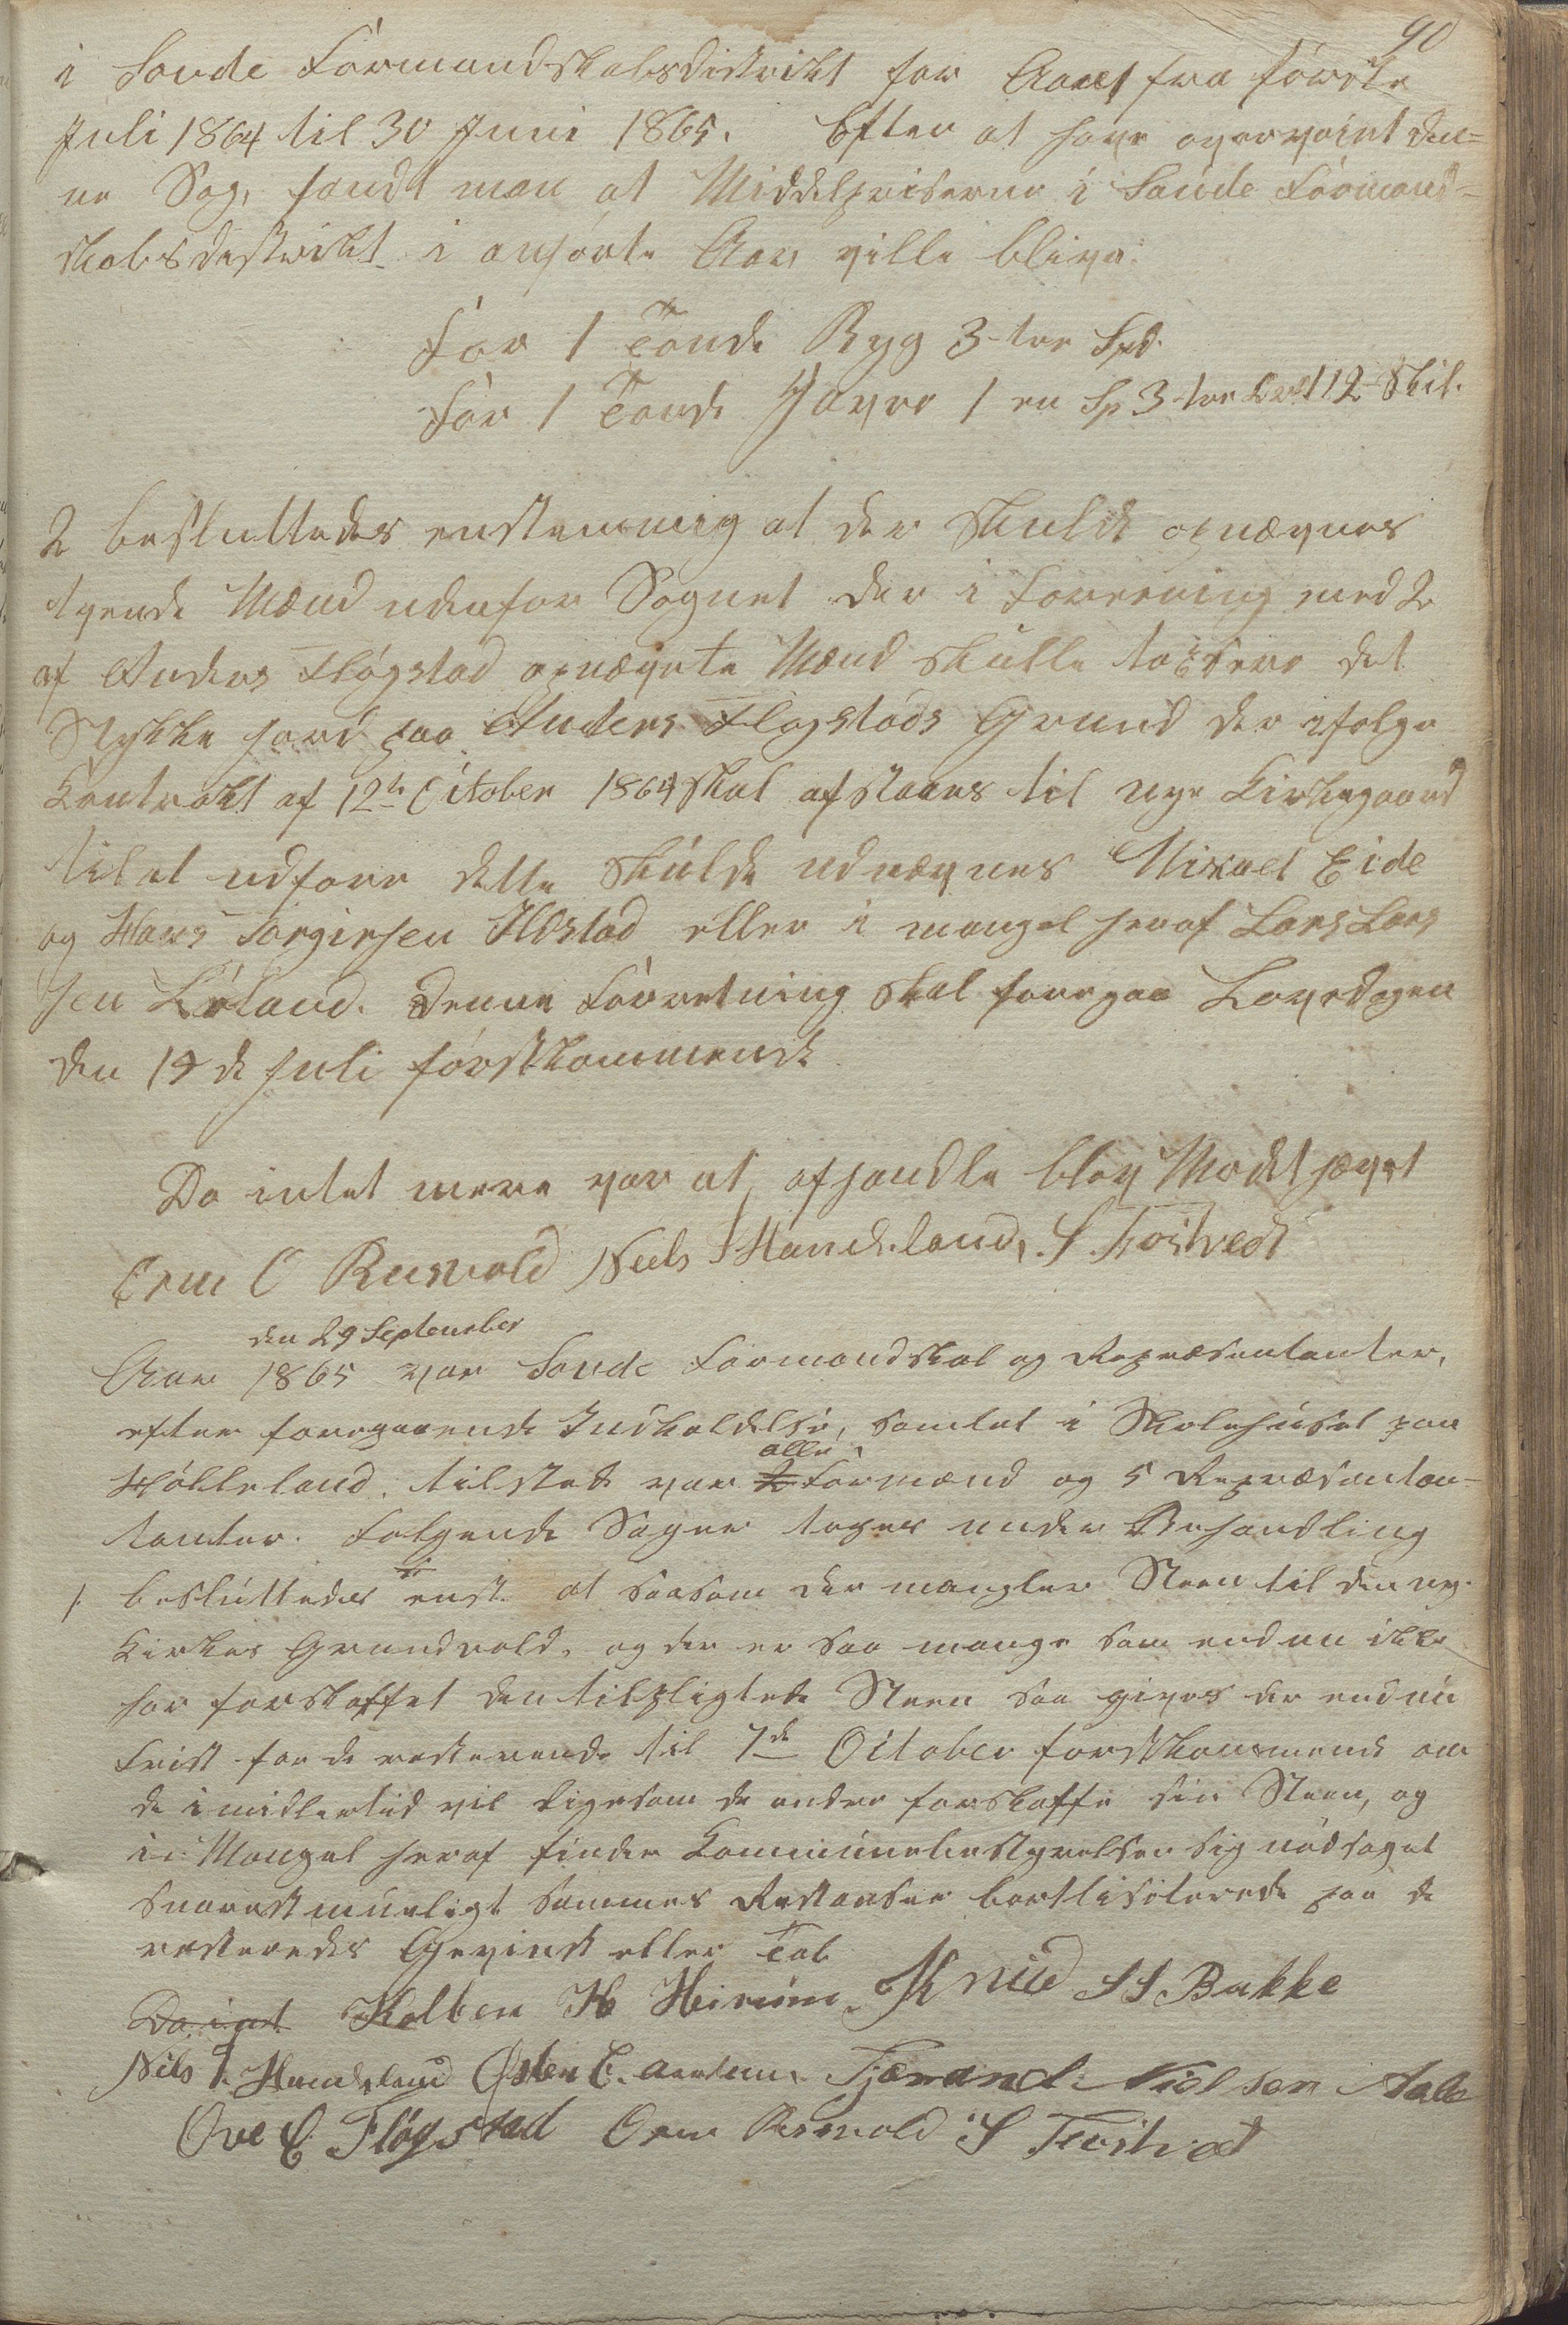 90
i Sovde Formandskabsdistrikt for Aaret fra første
Juli 1864 til 30 Juni 1865. Efter at have overveiet den-
ne Sag, fandt man at Middelpriserne i Saude Formand-
skabsdistrikt i anførte Aar ville blive:
For 1 Tønde Byg 3-tre Spd.
For 1 Tønde Havre 1 en Sp 3-tre Ort 12 Skil.
2 besluttedes enstemmig at der skulde opnævnes
tvende Mænd udenfor Sognet der i Forening med 2
af Anders Fløgstad opnævnte Mænd skulle taxsere det
Stykke Jord paa Anders Fløgstads Grund der ifølge
Kontrakt af 12te October 1864 skal afstaaes til nye Kirkegaard
til at udføre dette skulde udnævnes Mikael Eide
og Hans Torgirsen Ilstad eller i mangel heraf Lars Lars
sen Løland. Denne Forretning skal foregaa Løverdagen
den 19de Juli førstkommende
Da intet mere var at afhandle blev Mødet hævet
Orm O Rusvold Neels J Handeland, S. Fostvedt
den 29 September
Aar 1865 var Sovde Formandskab og Repræsentanter,
efter foregaaende Indkaldelse, samlet i Skolehuset paa
Hølleland. tilstede var alle Formænd og 5 Repræsentan-
tanter. Følgende Sager toges under Behandling
1. besluttedes enst. at saasom der mangler Steen til den nye
Kirkes Grundvold, og der er saa mange som endnu ikke
har forskaffet den tilpligtede Steen saa gives der endnu
Frist for de resterende til 7de October førstkommende om
de imidlertid vil ligesom de andre forskaffe sin Steen, og
i Mangel heraf finder Kommunebestyrelsen sig nødsaget
snarest muligt sammes Restanser bortlisiterede paa de
resteredes Gevinst eller Tab
Da int Kolben H Heirum Knud SS Bakke
Nils J. Handeland Østen E. Tjerand Nielsen Aale
Ove E Fløgstad Orm Rusvold S Fostvedt